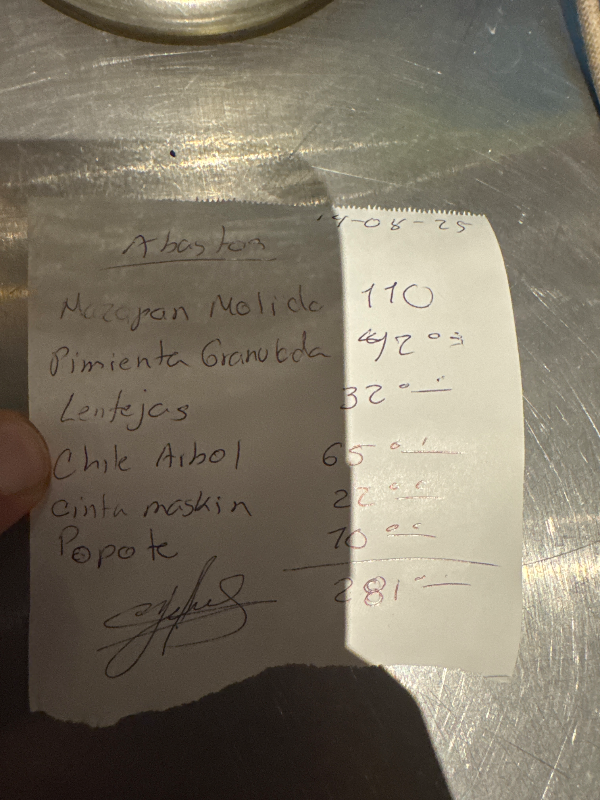 14-08-25
Abastos
Mazapan Molido 110
Pimienta Granulada 42 00
Lentejas 32 00
Chile Arbol 65 00
cinta maskin 22 00
Popote 10 00
281 00